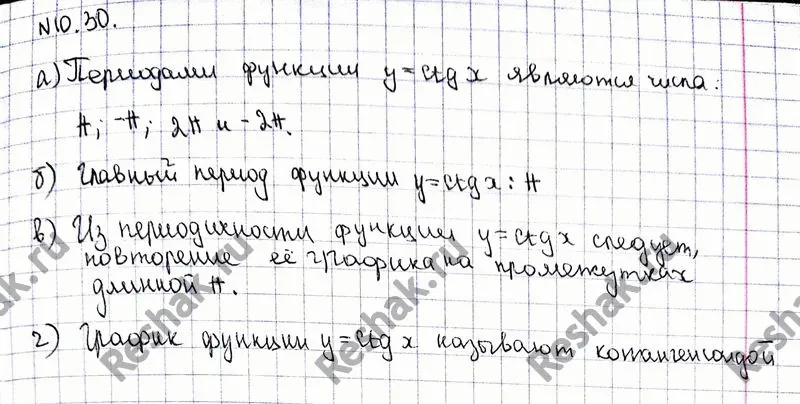 №10.30.
а) Периодами функции y=ctg x являются числа:
π; -π; 2π и -2π.
б) Главный период функции y=ctg x: π
в) Из периодичности функции y=ctg x следует,
повторение её графика на промежутках
длинной π.
г) График функции y=ctg x называют котангенсоидой
Reshak.ru
Reshak.ru
Reshak.ru
Reshak.ru